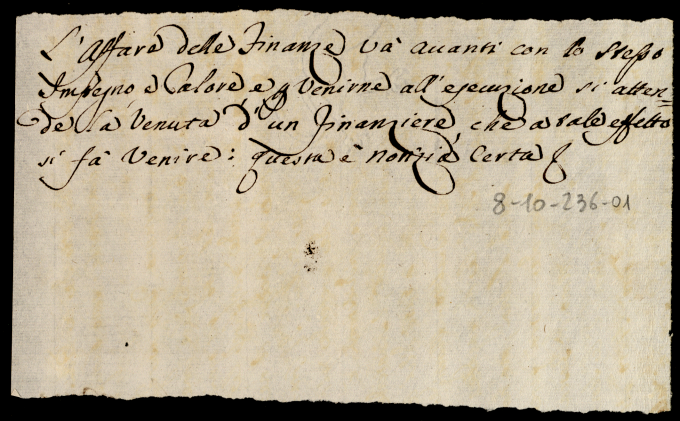 L'Affare delle Finanze và avanti con lo stesso
Impegno e Calore e p Venirne all'esecuzione si atten=
de la Venuta d'un Finanziere, che a tale effetto
si fà Venire: questa è notizia Certa
8-10-236-01